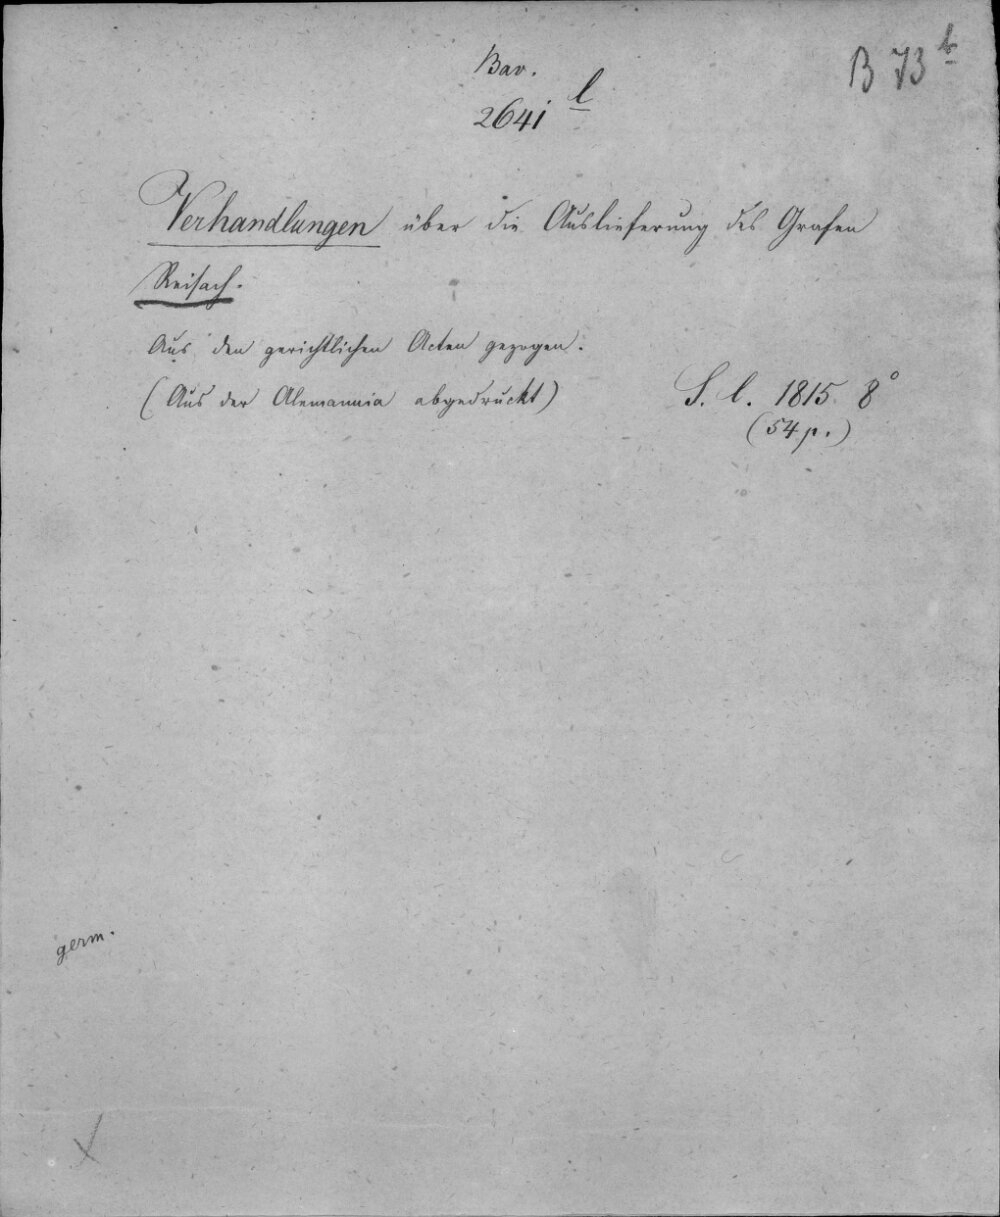 Bav.
B 73 b
2641 l
Verhandlungen über die Auslieferung des Grafen
Reisach.
Aus den gerichtlichen Acten gezogen.
(Aus der Alemannia abgedruckt)
S. l. 1815. 8°
(54 p.)
germ.